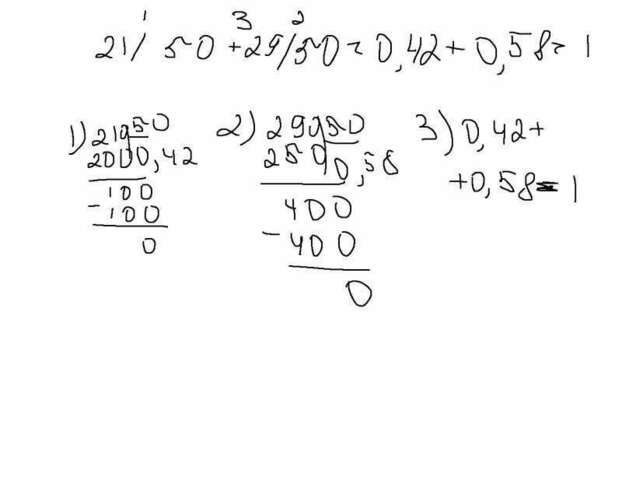 1 3 2
21/50+29/50=0,42+0,58=1
1) 21 50 2) 29 50 3) 0,42+
200 0,42 250 0,58 +0,58=1
100 400
-100 -400
0 0